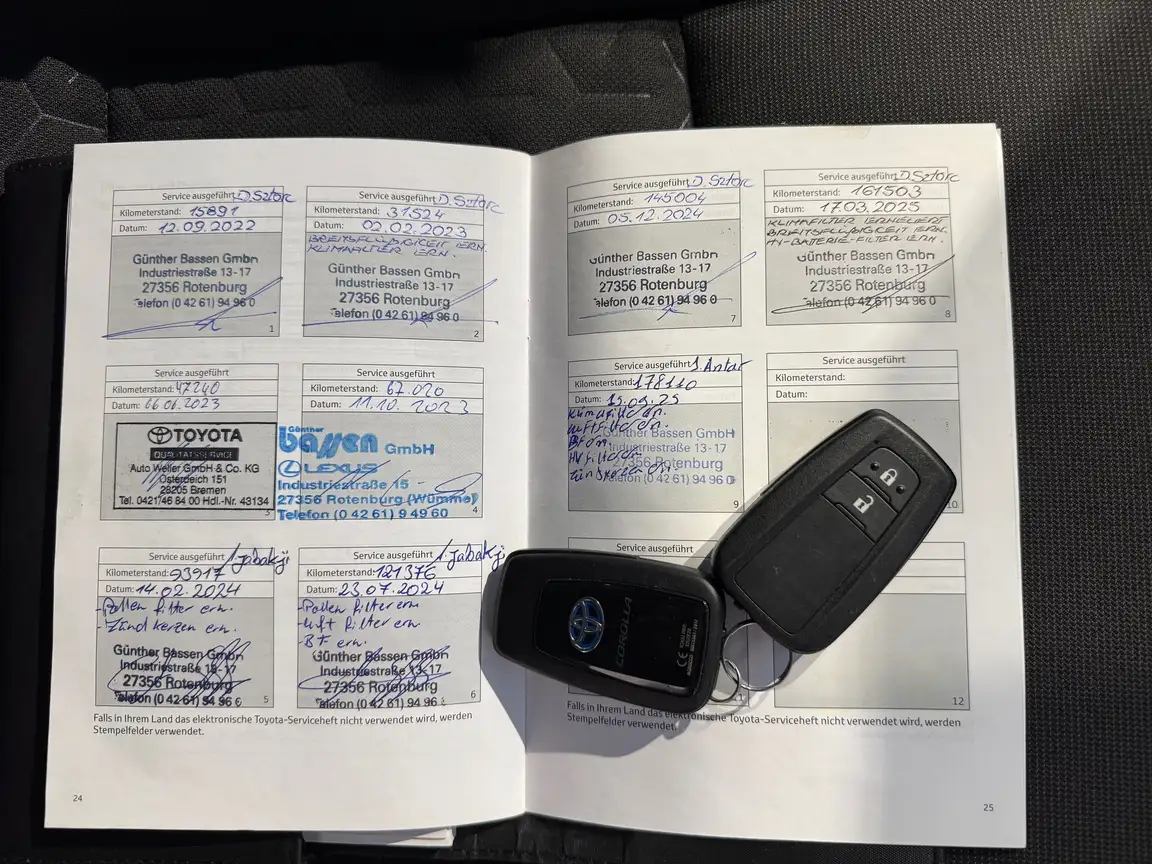 Service ausgeführt D. Sztorc
Kilometerstand: 15891
Datum: 12.09.2022
Günther Bassen GmbH
Industriestraße 13-17
27356 Rotenburg
Telefon (0 42 61) 94 96 0
1
Service ausgeführt D. Sztorc
Kilometerstand: 31524
Datum: 02.02.2023
BREMSFLÜßIGKEIT ERN.
KLIMAFILTER ERN.
Günther Bassen GmbH
Industriestraße 13-17
27356 Rotenburg
Telefon (0 42 61) 94 96 0
2
Service ausgeführt
Kilometerstand: 47240
Datum: 06.06.2023
TOYOTA
QUALITÄTSSERVICE
Auto Weller GmbH & Co. KG
Osterdeich 151
28205 Bremen
Tel. 0421/46 84 00 Hdl.-Nr. 43134
3
Service ausgeführt
Kilometerstand: 67.020
Datum: 11.10.2023
Günther
bassen GmbH
LEXUS
Industriestraße 15
27356 Rotenburg (Wümme)
Telefon (0 42 61) 9 49 60
4
Service ausgeführt
Kilometerstand: 93917
Datum: 14.02.2024
- Pollen filter ern.
- Zünd kerzen ern.
Günther Bassen GmbH
Industriestraße 13-17
27356 Rotenburg
Telefon (0 42 61) 94 96 0
5
Service ausgeführt
Kilometerstand: 121376
Datum: 23.07.2024
- Pollen filter ern
- Luft filter ern.
- BF ern.
Günther Bassen GmbH
Industriestraße 13-17
27356 Rotenburg
Telefon (0 42 61) 94 96
6
Falls in Ihrem Land das elektronische Toyota-Serviceheft nicht verwendet wird, werden
Stempelfelder verwendet.
24
Service ausgeführt D. Sztorc
Kilometerstand: 145004
Datum: 05.12.2024
Günther Bassen GmbH
Industriestraße 13-17
27356 Rotenburg
Telefon (0 42 61) 94 96 0
7
Service ausgeführt D. Sztorc
Kilometerstand: 161503
Datum: 17.03.2025
KLIMAFILTER
HV-BATERIE-FILTER
Günther Bassen GmbH
Industriestraße 13-17
27356 Rotenburg
Telefon (0 42 61) 94 96 0
8
Service ausgeführt
Kilometerstand: 178110
Datum: 15.09.25
Günther Bassen GmbH
Industriestraße 13-17
27356 Rotenburg
Telefon (0 42 61) 94 96 0
9
Service ausgeführt
Kilometerstand:
Datum:
10
Service ausgeführt
COROLLA
CE
11
12
Falls in Ihrem Land das elektronische Toyota-Serviceheft nicht verwendet wird, werden
Stempelfelder verwendet.
25